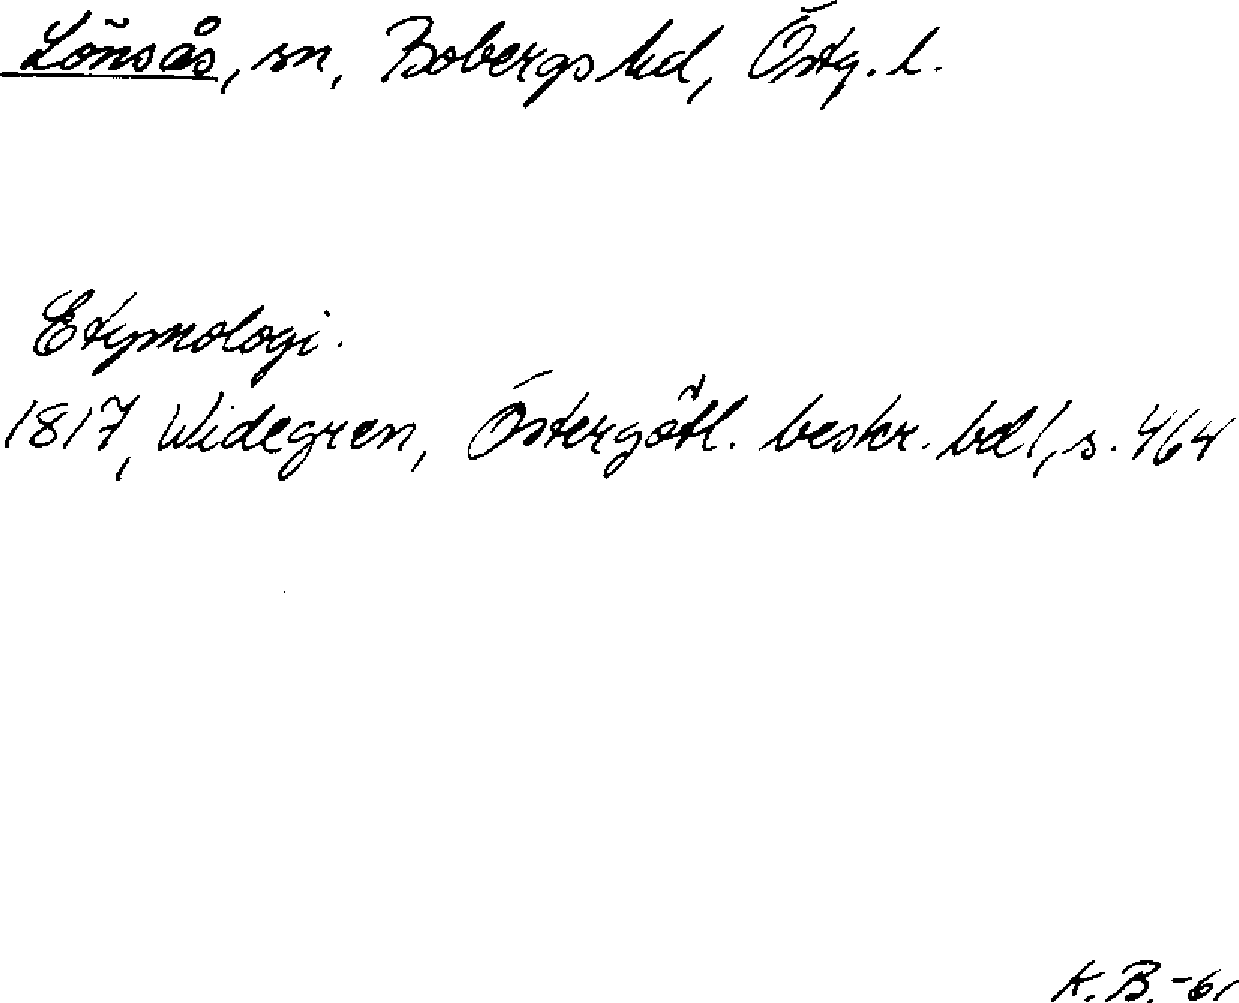 Lönsås, sn, Bobergs hd, Östg. l.
Etymologi.
1817, Widegren, Östergötl. beskr. bd 1, s. 464
K. B. -61